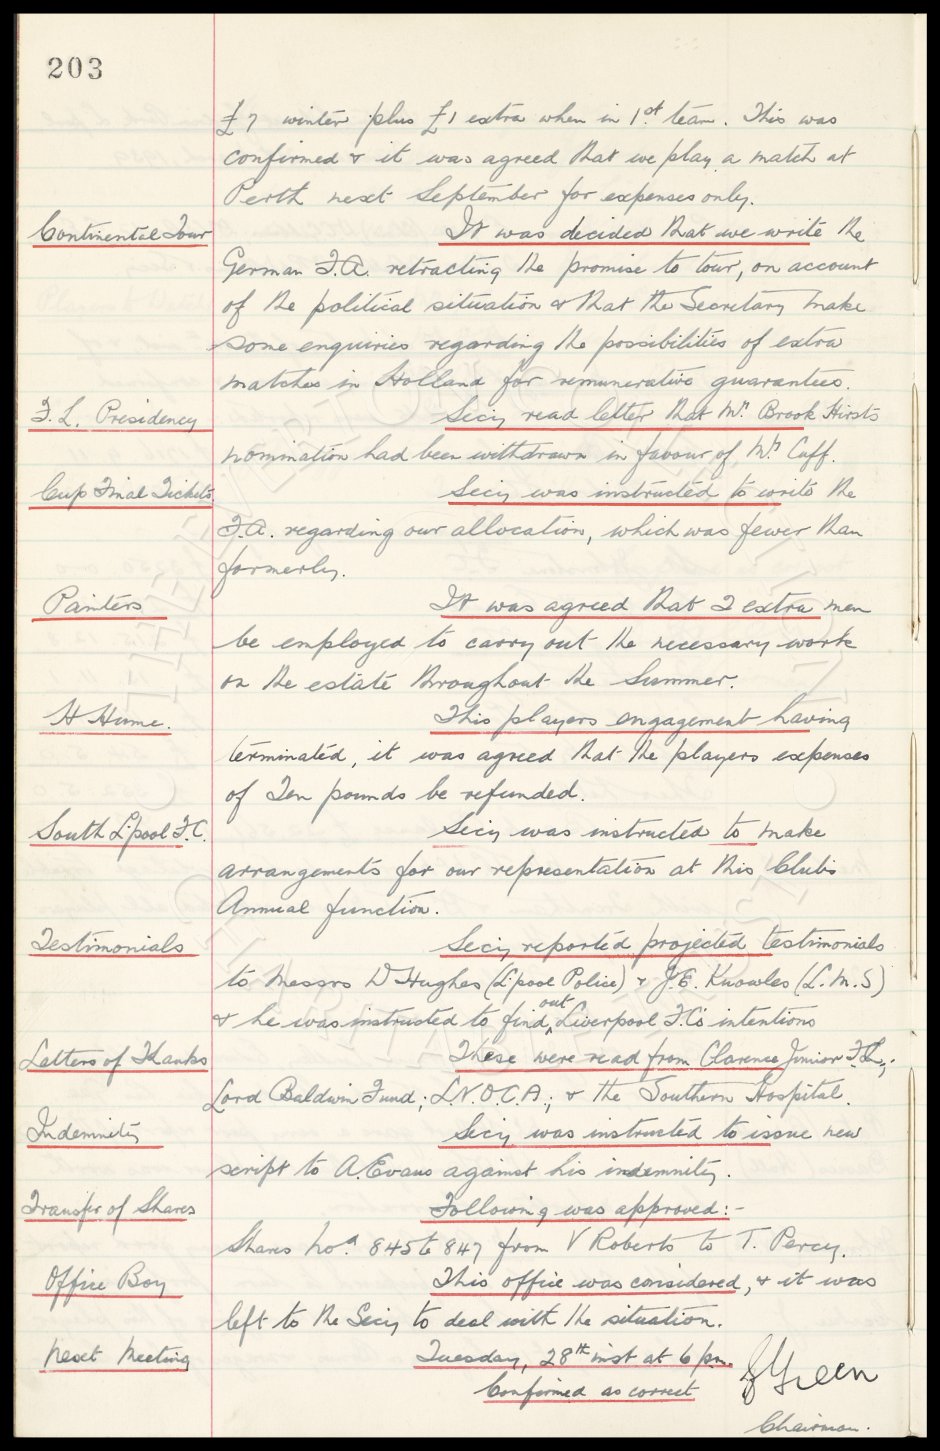 203
£7 winter plus £1 extra when in 1st team. This was
confirmed & it was agreed that we play a match at
Perth next September for expenses only.
Continental Tour It was decided that we write the
German F.A. retracting the promise to tour, on account
of the political situation & that the Secretary make
some enquiries regarding the possibilities of extra
matches in Holland for remunerative guarantees.
F.L. Presidency Secy read letter that Mr. Brook Hirsts
nomination had been withdrawn in favour of Mr. Cuff.
Cup Final Tickets Secy was instructed to write the
F.A. regarding our allocation, which was fewer than
formerly.
Painters It was agreed that 2 extra men
be employed to carry out the necessary work
on the estate throughout the Summer.
H Hume. This players engagement having
terminated, it was agreed that the players expenses
of Ten pounds be refunded.
South L'pool F.C. Secy was instructed to make
arrangements for our representation at this Clubs
Annual function.
Testimonials Secy reported projected testimonials
to Messrs D Hughes (L'pool Police) & J.E. Knowles (L.M.S)
& he was instructed to find out Liverpool F.C's intentions
Letters of Thanks These were read from Clarence Junior F.L.;
Lord Baldwin Fund; L.N.O.C.A.; & the Southern Hospital.
Indemnity Secy was instructed to issue new
script to A. Evans against his indemnity.
Transfer of Shares Following was approved:-
Shares Nos. 845 to 847 from V Roberts to T. Percy.
Office Boy This office was considered, & it was
left to the Secy to deal with the situation.
Next Meeting Tuesday, 28th inst at 6 pm.
Confirmed as correct
Green
Chairman.